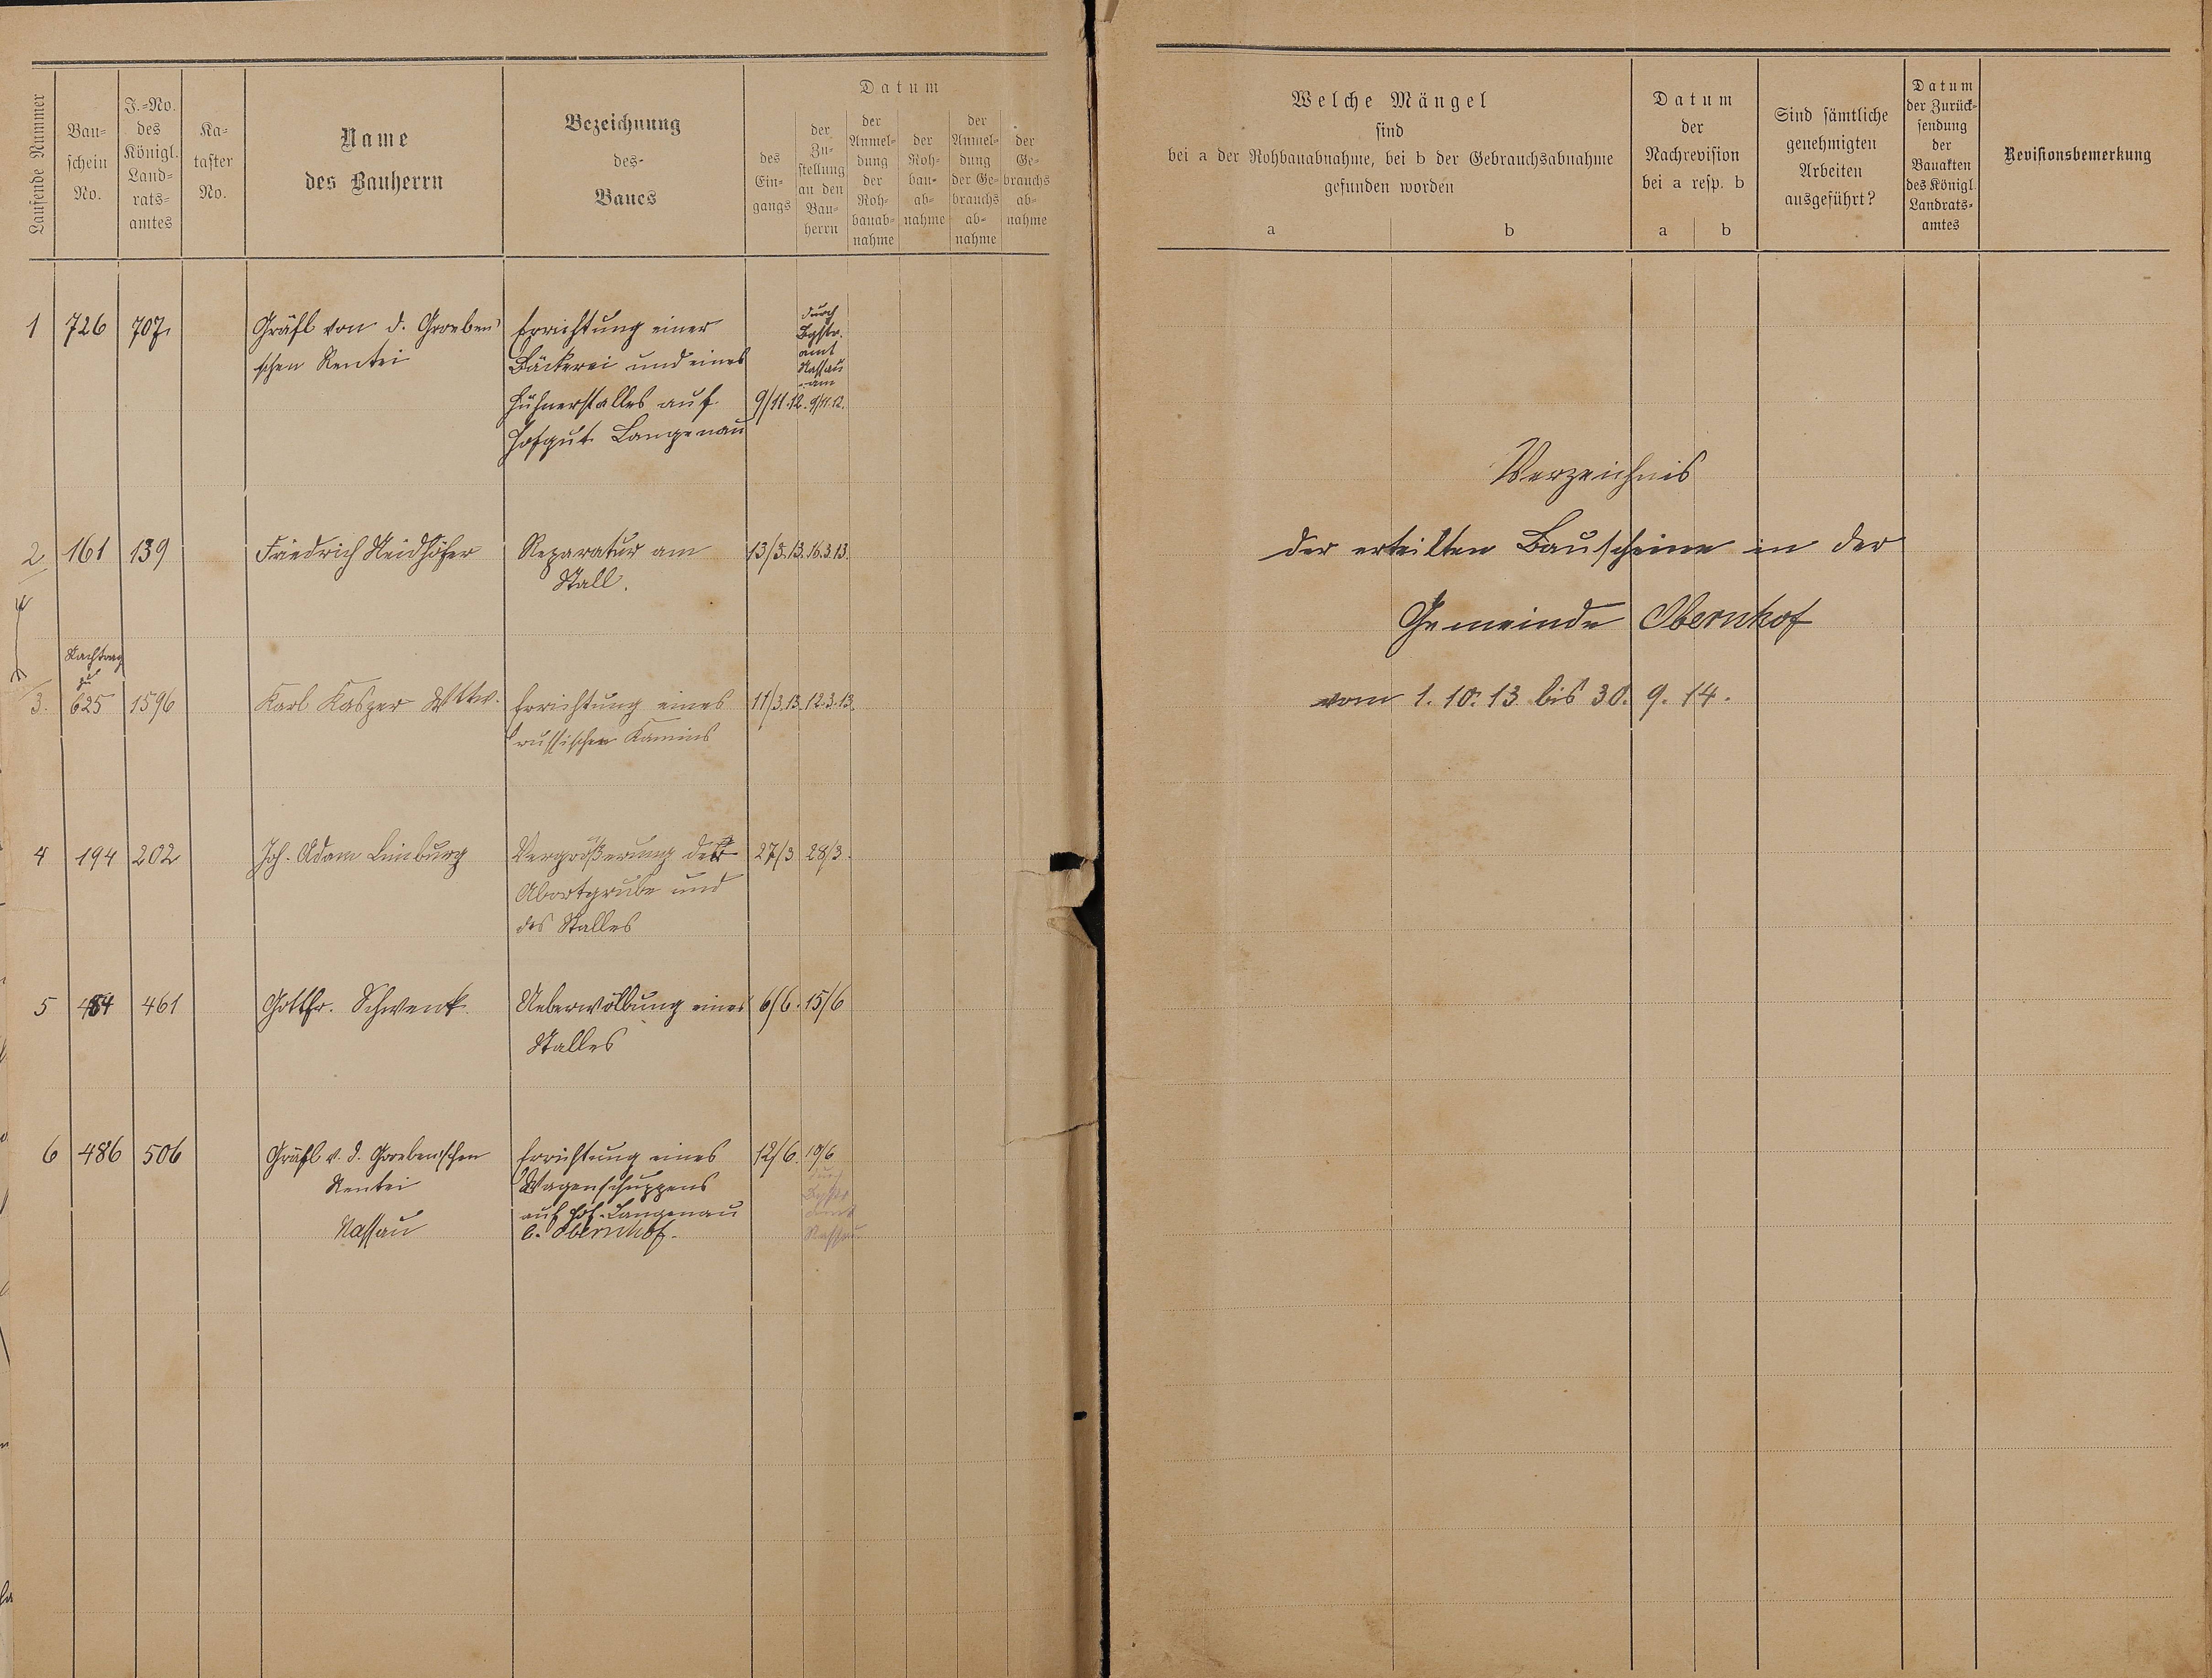 Laufende Nummer
Bau-
schein
No.
J.-No.
des
Königl.
Land-
rats-
amtes
Ka-
taster
No.
Name
des Bauherrn
Bezeichnung
des
Baues
Datum
des
Ein-
gangs
der
Zu-
stellung
an den
Bau-
herrn
der
Anmel-
dung
der
Roh-
bauab-
nahme
der
Roh-
bau-
ab-
nahme
der
Anmel-
dung
der Ge-
brauchs
ab-
nahme
der
Ge-
brauchs
ab-
nahme
1 726 707. Gräfl von d. Groeben' Errichtung einer
schen Rentei Bäckerei und eines
Hühnerstalles auf 9/11.12. 9/11.12.
Hofgut Langenau
durch
Bgstr.
amt
Nassau
am
2 161 139 Friedrich Neidhöfer Reparatur am 13/3.13. 16.3.13.
Stall.
Nachtrag
zu
3. 625 1596 Karl Kasper Wttw. Errichtung eines 11/3.13. 12.3.13.
russischen Kamins
4 194 202 Joh. Adam Limburg Vergrößerung der 27/3 28/3.
Abortgrube und
des Stalles
5 484 461 Gottfr. Schwenk. Ueberwölbung eines 6/6. 15/6
Stalles
6 486 506 Gräfl v. d. Groeben'schen Errichtung eines 12/6. 19/6
Rentei Wagenschuppens durch
auf Hof-Langenau Bgstr
Nassau b. Obernhof. amt
Nassau
Welche Mängel
sind
bei a der Rohbauabnahme, bei b der Gebrauchsabnahme
gefunden worden
a b
Datum
der
Nachrevision
bei a resp. b
a b
Sind sämtliche
genehmigten
Arbeiten
ausgeführt?
Datum
der Zurück-
sendung
der
Bauakten
des Königl.
Landrats-
amtes
Revisionsbemerkung
Verzeichnis
der erteilten Bauscheine in der
Gemeinde Obernhof
vom 1. 10. 13 bis 30. 9. 14.